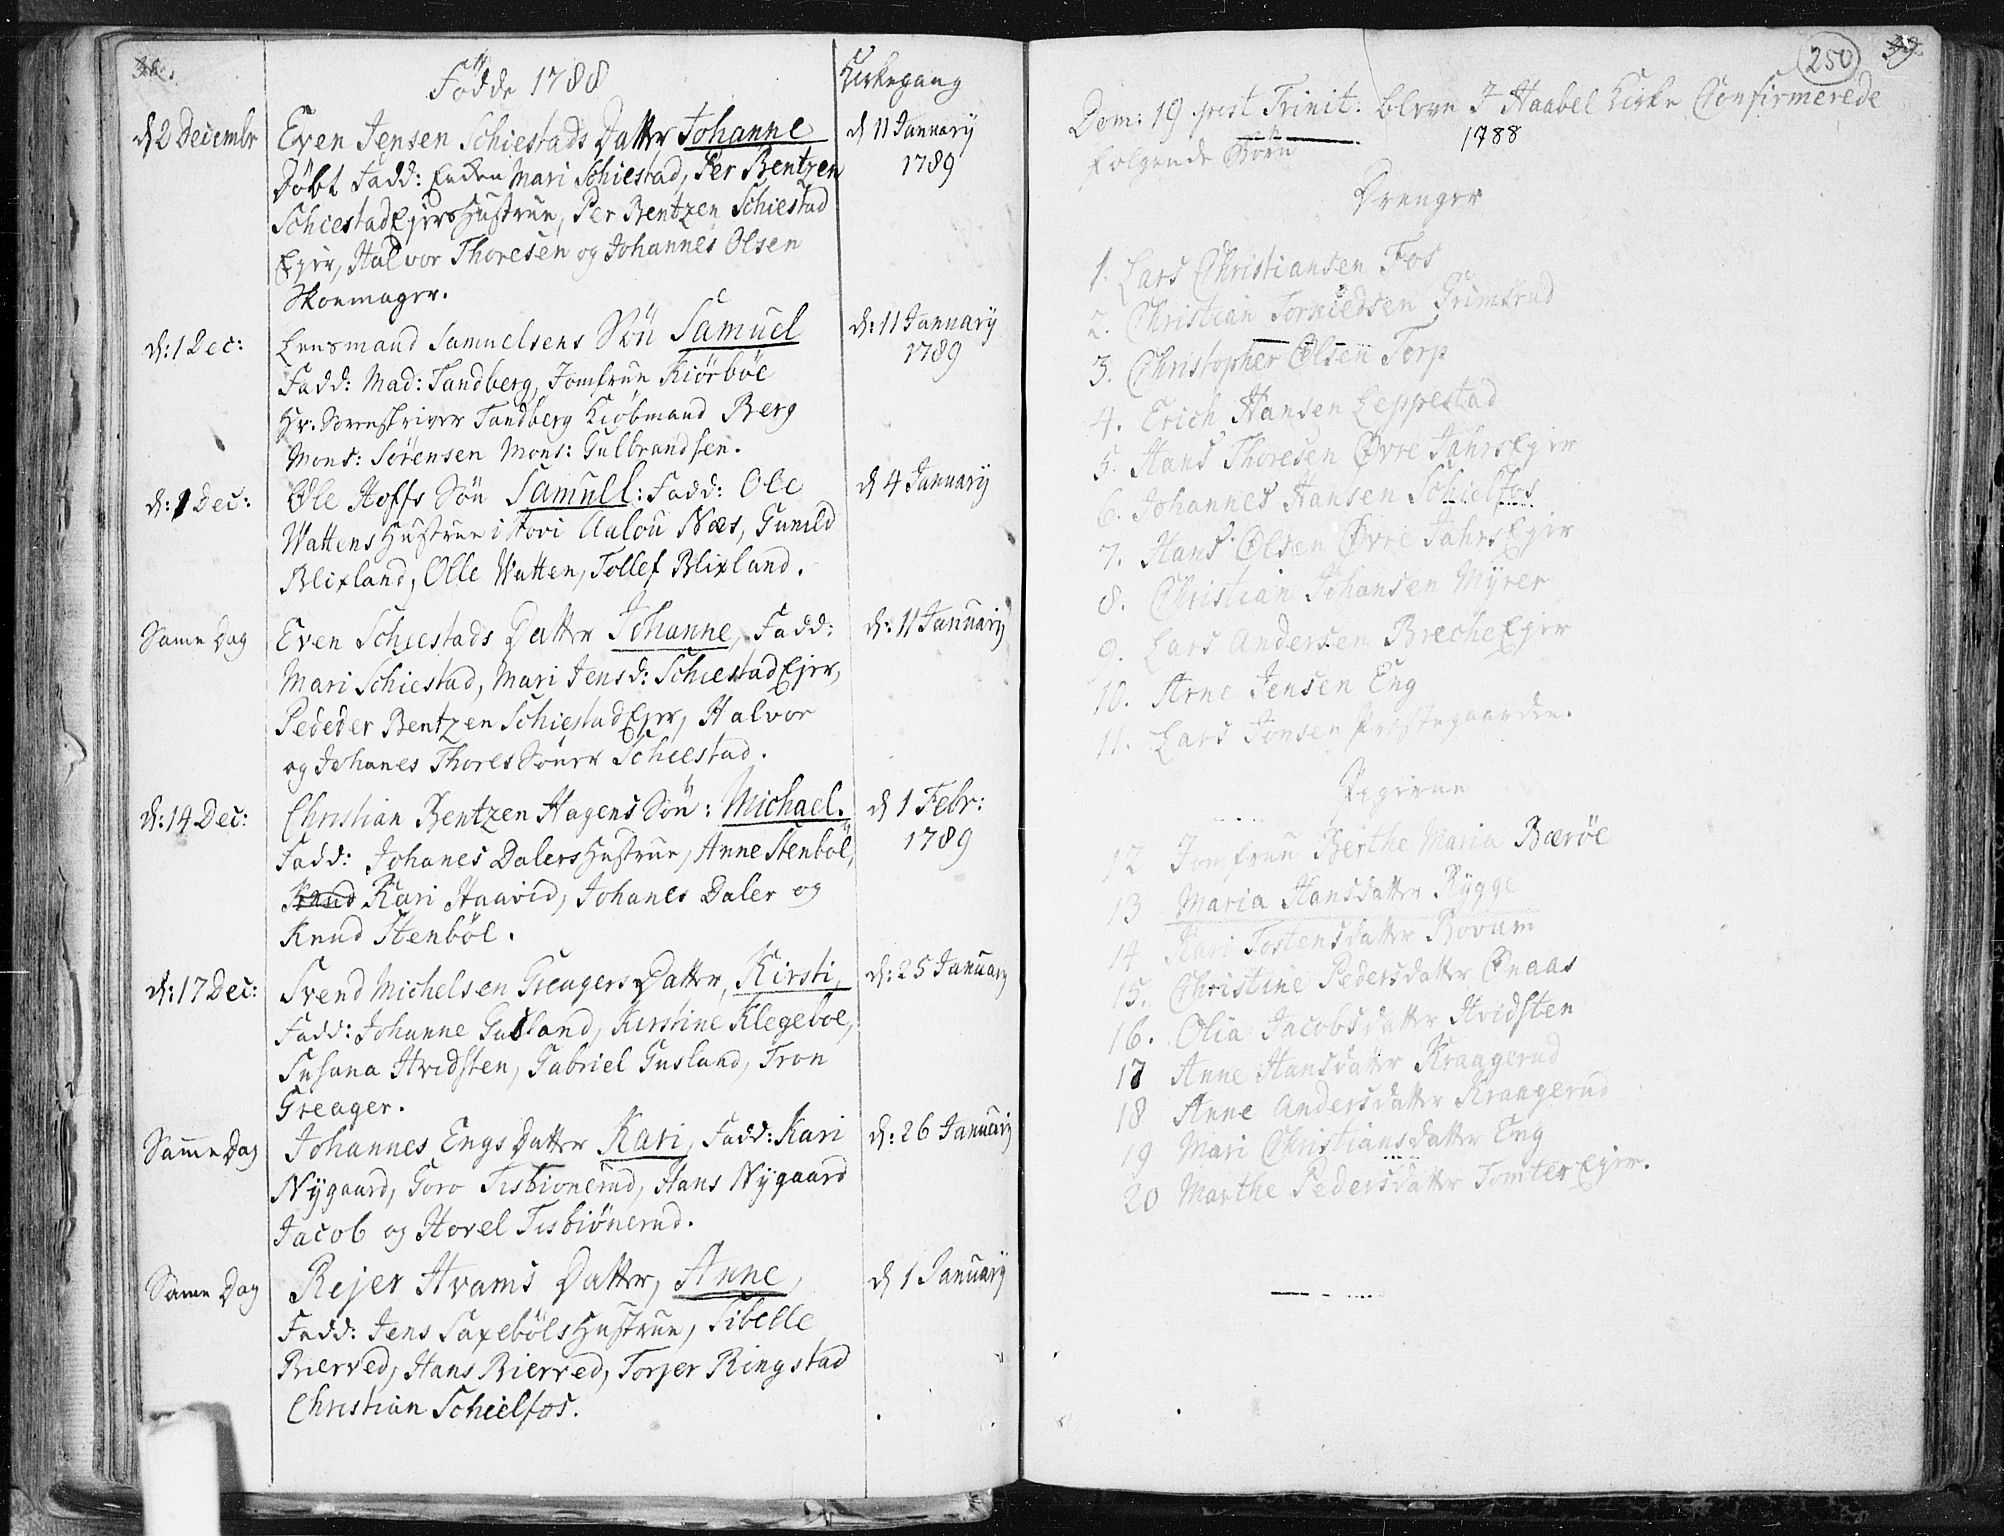 38.
Födde 1788
Kirkegang
d 2 Decembr
Even Jensen Schiestads Datter Johanne
d 11 January
1789
Döbt Fadd: Enken Mari Schiestad, Per Bentzen
SchiestadEjers Hustrue, Per Bentzen Schiestad
Ejer, Halvor Thoresen og Johannes Olsen
Skoemager.
d: 1 Dec:
Lensmand Samuelsens Sön Samuel
d: 11 January
1789
Fadd: Mad: Tandberg, Jomfrue Kiörböe
Hr. Sorenskriver Tandberg Kiöbmand Berg
Mons: Sörensen Mons: Gulbrandsen.
d: 1 Dec:
Ole Hoffs Sön Samuel: Fadd: Ole
d 4 January
Wattens Hustrue i Hovi Aalou Næs, Gunild
Blixland, Olle Watten, Tollef Blixland.
Same Dag
Even Schiestads Datter Johanne, Fadd:
d: 11 January
Mari Schiestad, Mari Jensd: SchiestadEjer,
Pededer Bentzen SchiestadEjer, Halvor
og Johanes Thores Sönner Schiestad.
d: 14 Dec:
Christian Bentzen Hagens Sön: Michael.
d 1 Febr:
1789
Fadd: Johanes Dalers Hustrue, Anne Stenböl,
Knud Kari Haavid, Johanes Daler og
Knud Stenböl.
d: 17 Dec:
Svend Michelsen Greagers Datter, Kirsti,
d: 25 January
Fadd: Johanne Gusland, Kirstine Klegeboe,
Susana Hvidsten, Gabriel Gusland, Tron
Greager.
Same Dag
Johannes Engs Datter Kari, Fadd: Kari
d: 26 January
Nygaard, Goro Tisbionerud, Hans Nygaard
Jacob og Hovel Tisbiönerud.
Same Dag
Rejer Hvams Datter, Anne,
d 1 January
Fadd: Jens Saxeböls Hustrue, Sibelle
Bierved, Hans Bierved, Torjer Ringstad
Christian Schielfos.
250
39
Dom: 19 post Trinit: bleve J Haabel Kirke Confirmerede
følgende Børn
1788
Drenge
1. Lars Christiansen Fos
2. Christian Torkieldsen Grimsrud
3. Christopher Olsen Torp
4. Erich Hansen Leppestad
5. Hans Thoresen Øvre JahrsEjer
6. Johannes Hansen Schielfos
7. Hans Olsen Øvre JahrsEjer
8. Christian Johansen Myrer
9. Lars Andersen BrecheEjer
10. Arne Jensen Eng
11. Lars Jonsen Præstegaarden.
Pigerne
12 Jomfrue Berthe Maria Bærøe
13 Maria Hansdatter Rygge
14 Kari Tostensdatter Rovum
15. Christine Pedersdatter Onaas
16. Olia Jacobsdatter Hvidsten
17 Anne Hansdatter Kraagerud
18 Anne Andersdatter Kraagerud
19 Mari Christiansdatter Eng
20 Marthe Pedersdatter TomterEjer.